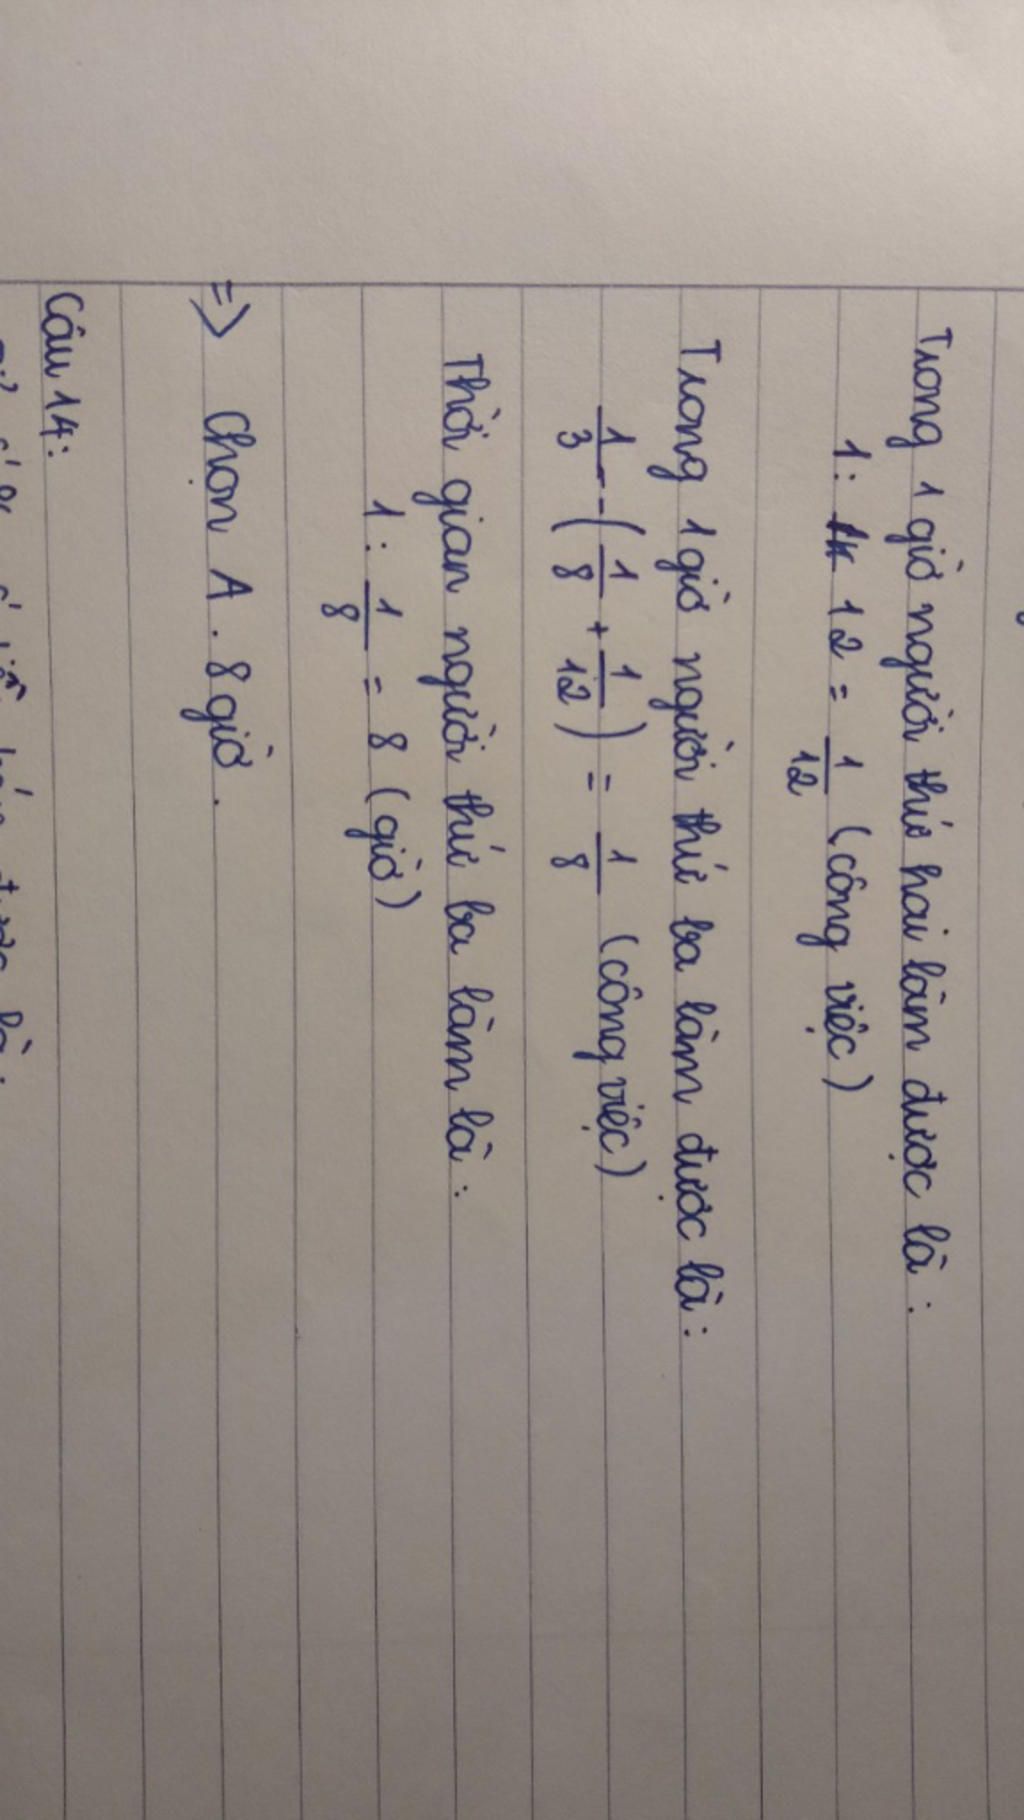 Trong 1 giờ người thứ hai làm được là :
1 : 12 = 1/12 (công việc)
Trong 1 giờ người thứ ba làm được là :
1/3 - (1/8 + 1/12) = 1/8 (công việc)
Thời gian người thứ ba làm là :
1 : 1/8 = 8 (giờ)
=> Chọn A . 8 giờ .
Câu 14 :